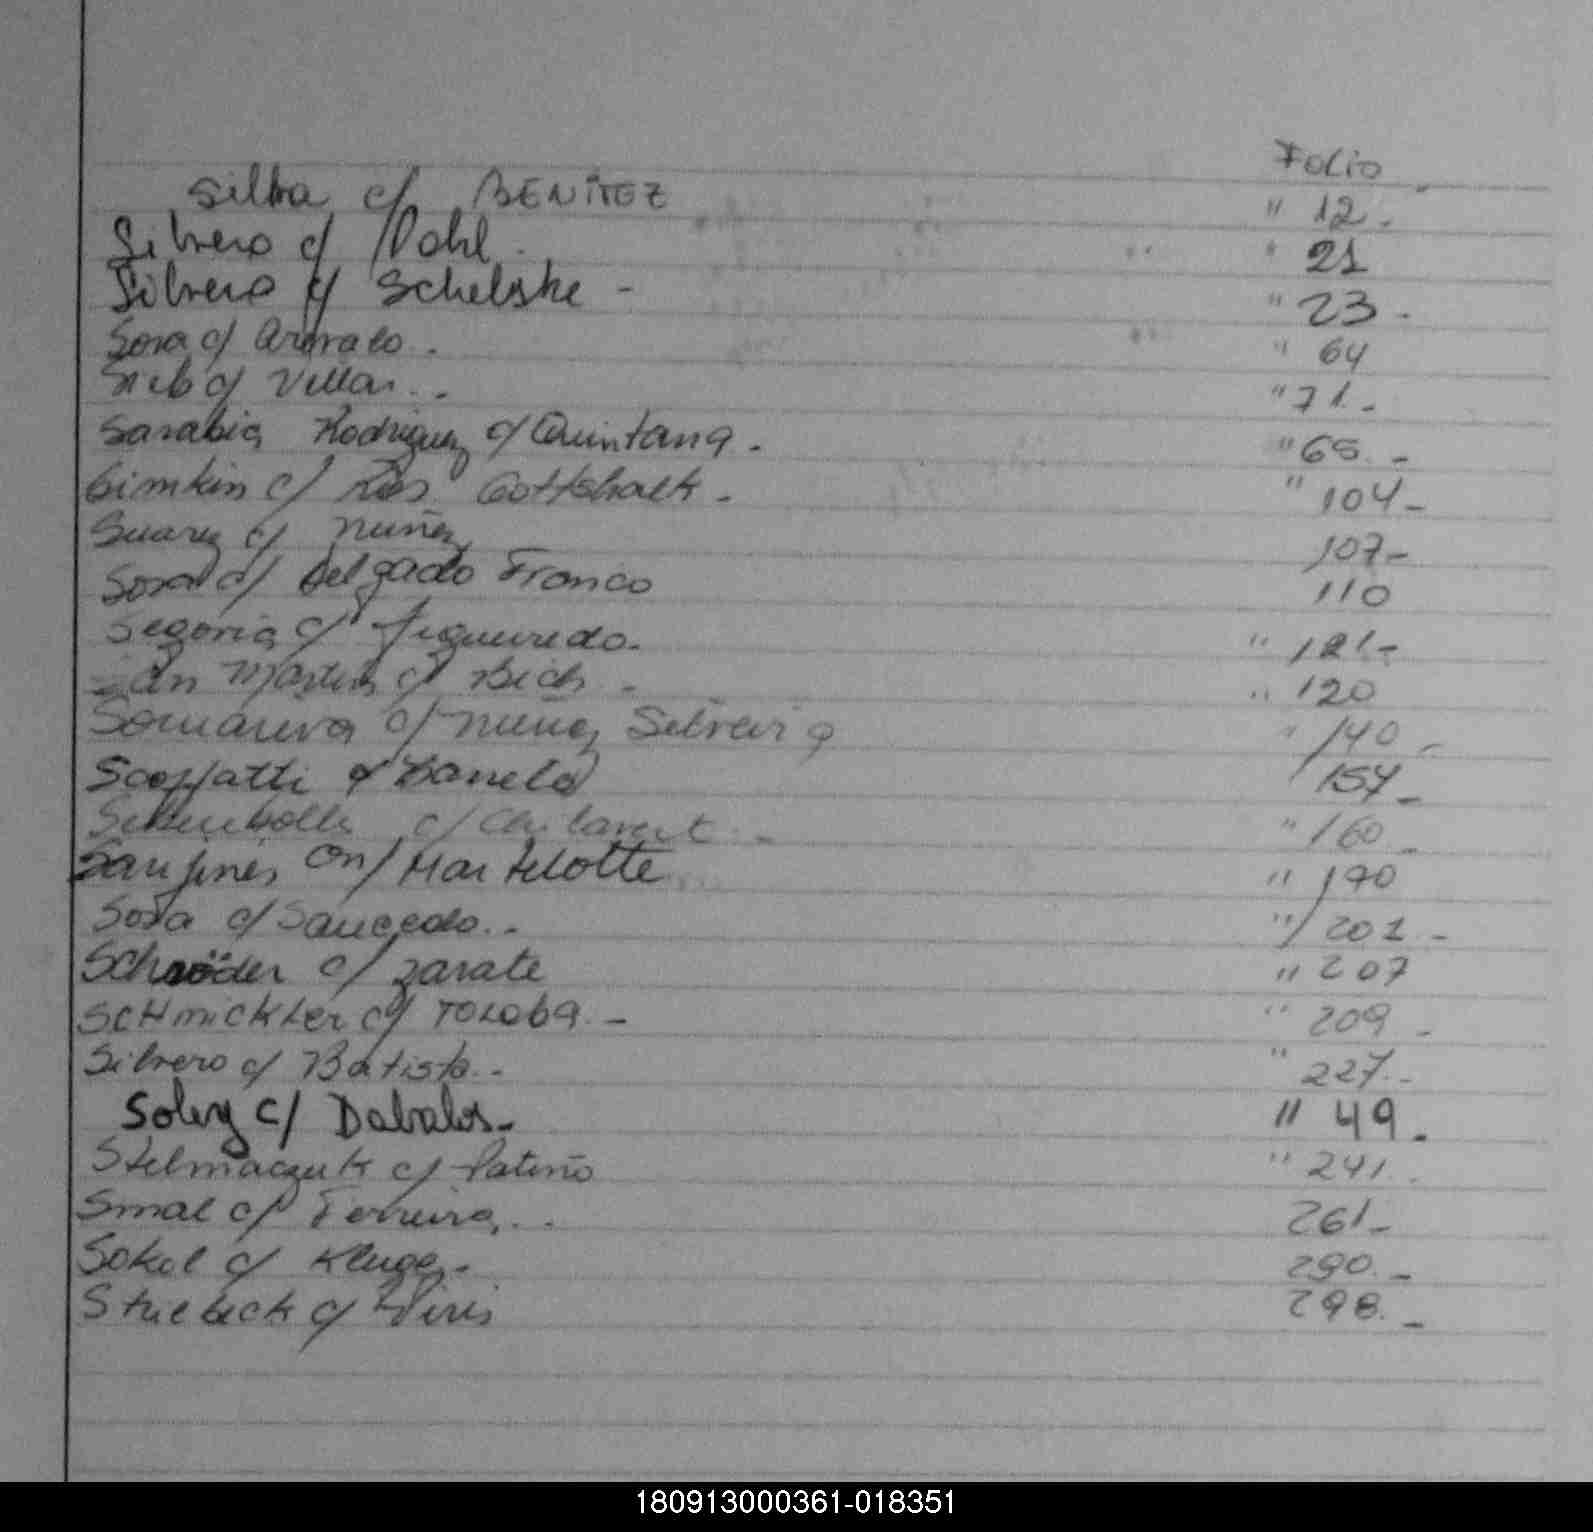 Folio
Silva c/ BENITEZ " 12.
Silvero c/ Dahl. " 21
Silvero c/ Schelske - " 23 -
Sosa c/ Arevalo. - " 64
c/ Villar. . - " 71. -
Sarabia Rodriguez c/ Quintana. - " 65. -
Simkin c/ Gottshalk. - " 104-
Suarez c/ Nuñez 107-
Sosa c/ Delgado Franco 110
Segovia c/ Figueiredo. " 121-
San Martin c/ Bich - " 120
Somariva c/ Nuñez Silveira " 140 -
c/ 157 -
c/ " 160 -
c/ Martelotte " 190
Sosa c/ Saucedo. . " 201 -
Schröder c/ Zarate " 207
SCHmickler c/ Toloba. - " 209 -
Silvero c/ Batista. . " 227. -
Soley c/ Dabalos- " 49 .
Stelmaczuk c/ Patiño " 241. .
Smal c/ Ferreira. . . 261-
Sokol c/ Kluge. - 290. -
Striebeck c/ 298. -
180913000361-018351